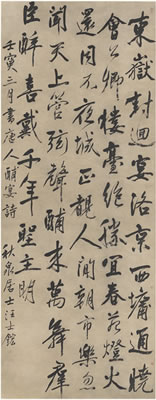 東嶽封迴宴洛京西墉通晚
會公卿樓臺絶勝宜春苑燈火
還同不夜城正觀人間朝市樂忽
聞天上管弦聲酺來萬舞羣
臣醉喜戴千年聖主明
壬寅三月書唐人酺宴詩
秋泉居士汪士鋐